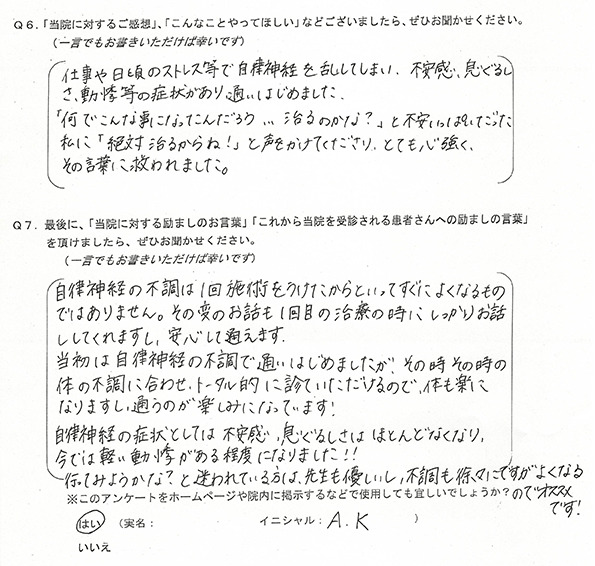 Q6.「当院に対するご感想」、「こんなことやってほしい」などございましたら、ぜひお聞かせください。
(一言でもお書きいただければ幸いです)
仕事や日頃のストレス等で自律神経を乱してしまい、不安感、息ぐるし
さ、動悸等の症状があり通いはじめました。
「何でこんな事になってこんだろう…治るのかな?」と不安いっぱいでごった
私に「絶対治るからね!」と声をかけてくださり、とても心強く、
その言葉に救われました。
Q7.最後に、「当院に対する励ましのお言葉」「これから当院を受診される患者さんへの励ましの言葉」
を頂けましたら、ぜひお聞かせください。
(一言でもお書きいただければ幸いです)
自律神経の不調は1回施術をうけたからといってすぐによくなるもの
ではありません。その変のお話も1回目の治療の時にしっかりお話
ししてくれますし、安心して通えます。
当初は自律神経の不調で通いはじめましたが、その時その時の
体の不調に合わせ、トータル的に診ていただけるので、体も楽に
なりますし、通うのが楽しみになっています!
自律神経の症状としては不安感、息ぐるしさはほとんどなくなり、
今では軽い動悸がある程度になりました!!
行ってみようかな?と迷われている方は、先生も優しいし、不調も徐々にですがよくなる
のでオススメ
です!
※このアンケートをホームページや院内に掲示するなどで使用しても宜しいでしょうか?
はい (実名: イニシャル:A.K )
いいえ